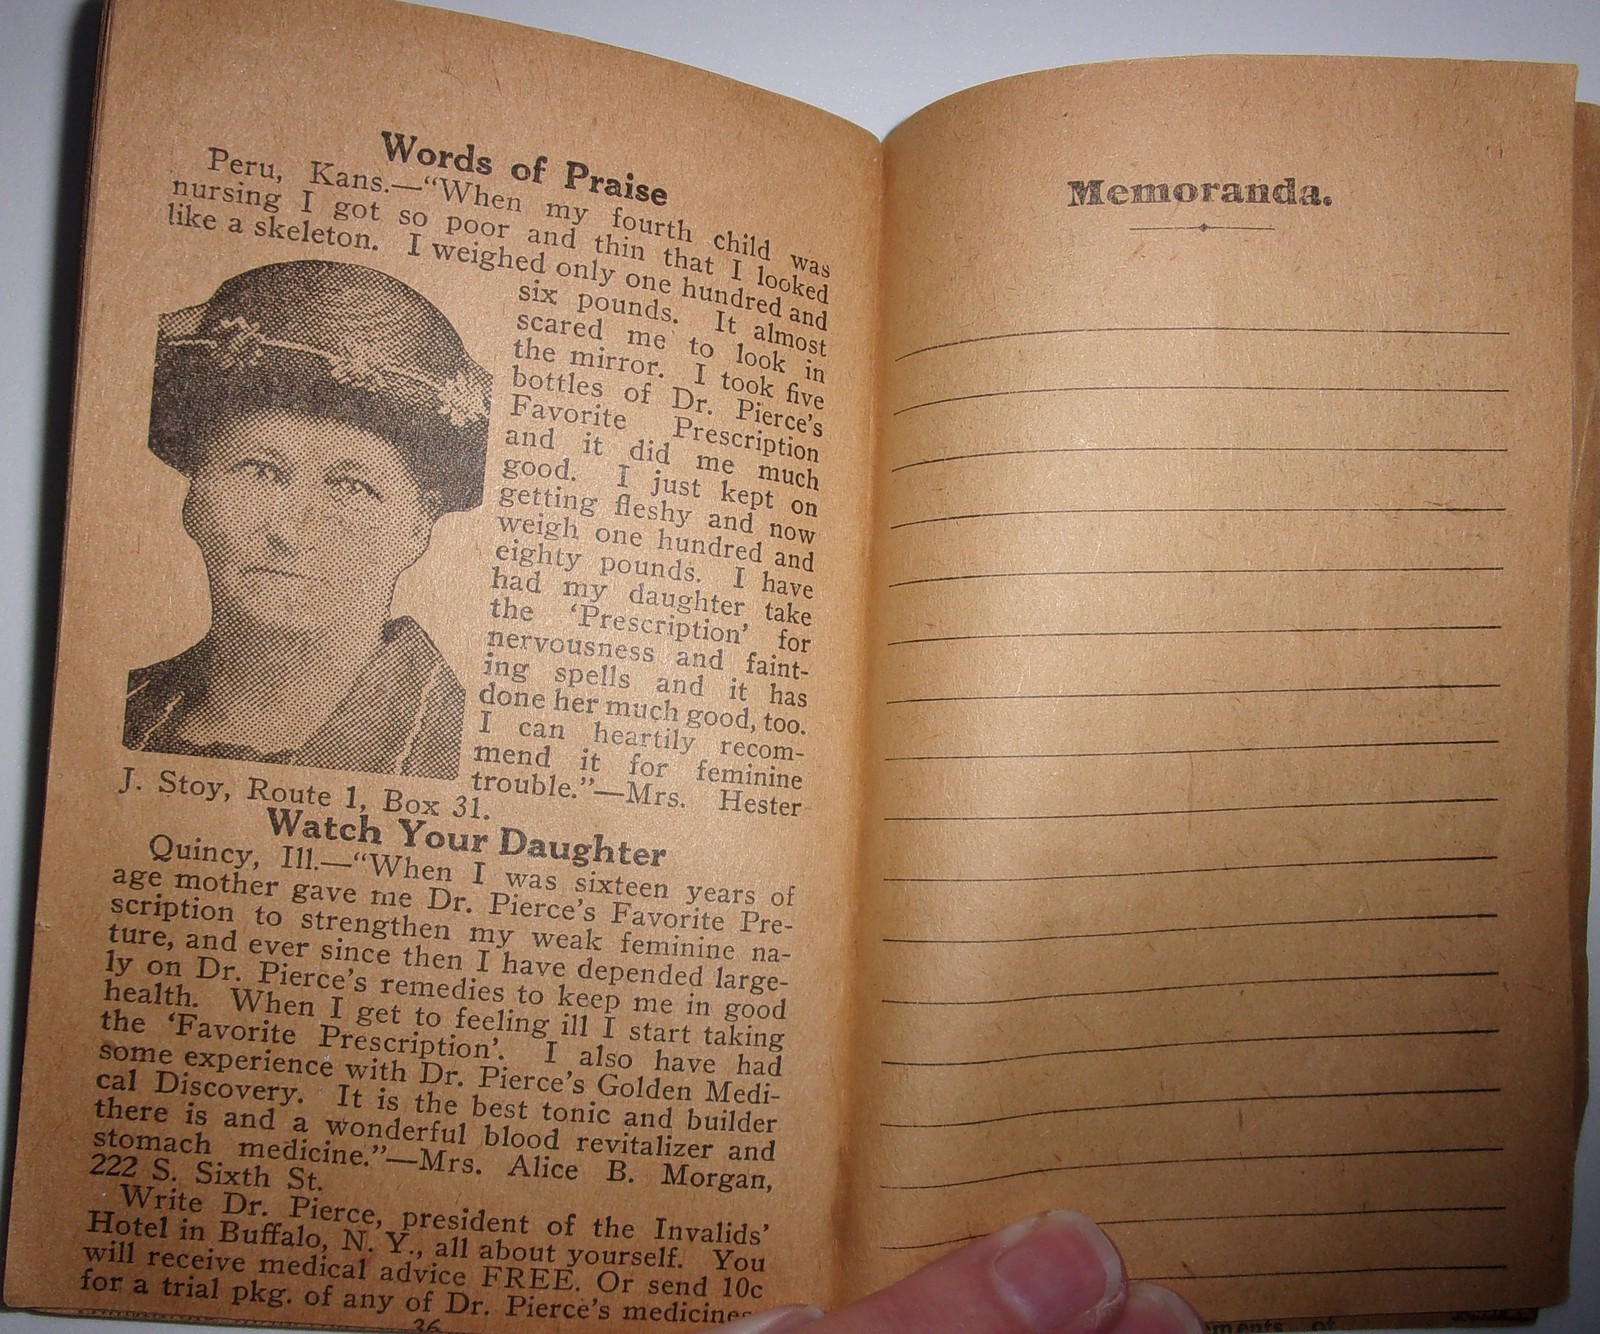 Words of Praise
Peru, Kans.—“When my fourth child was
nursing I got so poor and thin that I looked
like a skeleton. I weighed only one hundred and
six pounds. It almost
scared me to look in
the mirror. I took five
bottles of Dr. Pierce’s
Favorite Prescription
and it did me much
good. I just kept on
getting fleshy and now
weigh one hundred and
eighty pounds. I have
had my daughter take
the ‘Prescription’ for
nervousness and faint-
ing spells and it has
done her much good, too.
I can heartily recom-
mend it for feminine
trouble.”—Mrs. Hester
J. Stoy, Route 1, Box 31.
Watch Your Daughter
Quincy, Ill.—“When I was sixteen years of
age mother gave me Dr. Pierce’s Favorite Pre-
scription to strengthen my weak feminine na-
ture, and ever since then I have depended large-
ly on Dr. Pierce’s remedies to keep me in good
health. When I get to feeling ill I start taking
the ‘Favorite Prescription’. I also have had
some experience with Dr. Pierce’s Golden Medi-
cal Discovery. It is the best tonic and builder
there is and a wonderful blood revitalizer and
stomach medicine.”—Mrs. Alice B. Morgan,
222 S. Sixth St.
Write Dr. Pierce, president of the Invalids’
Hotel in Buffalo, N. Y., all about yourself. You
will receive medical advice FREE. Or send 10c
for a trial pkg. of any of Dr. Pierce’s medicines
36
Memoranda.
of